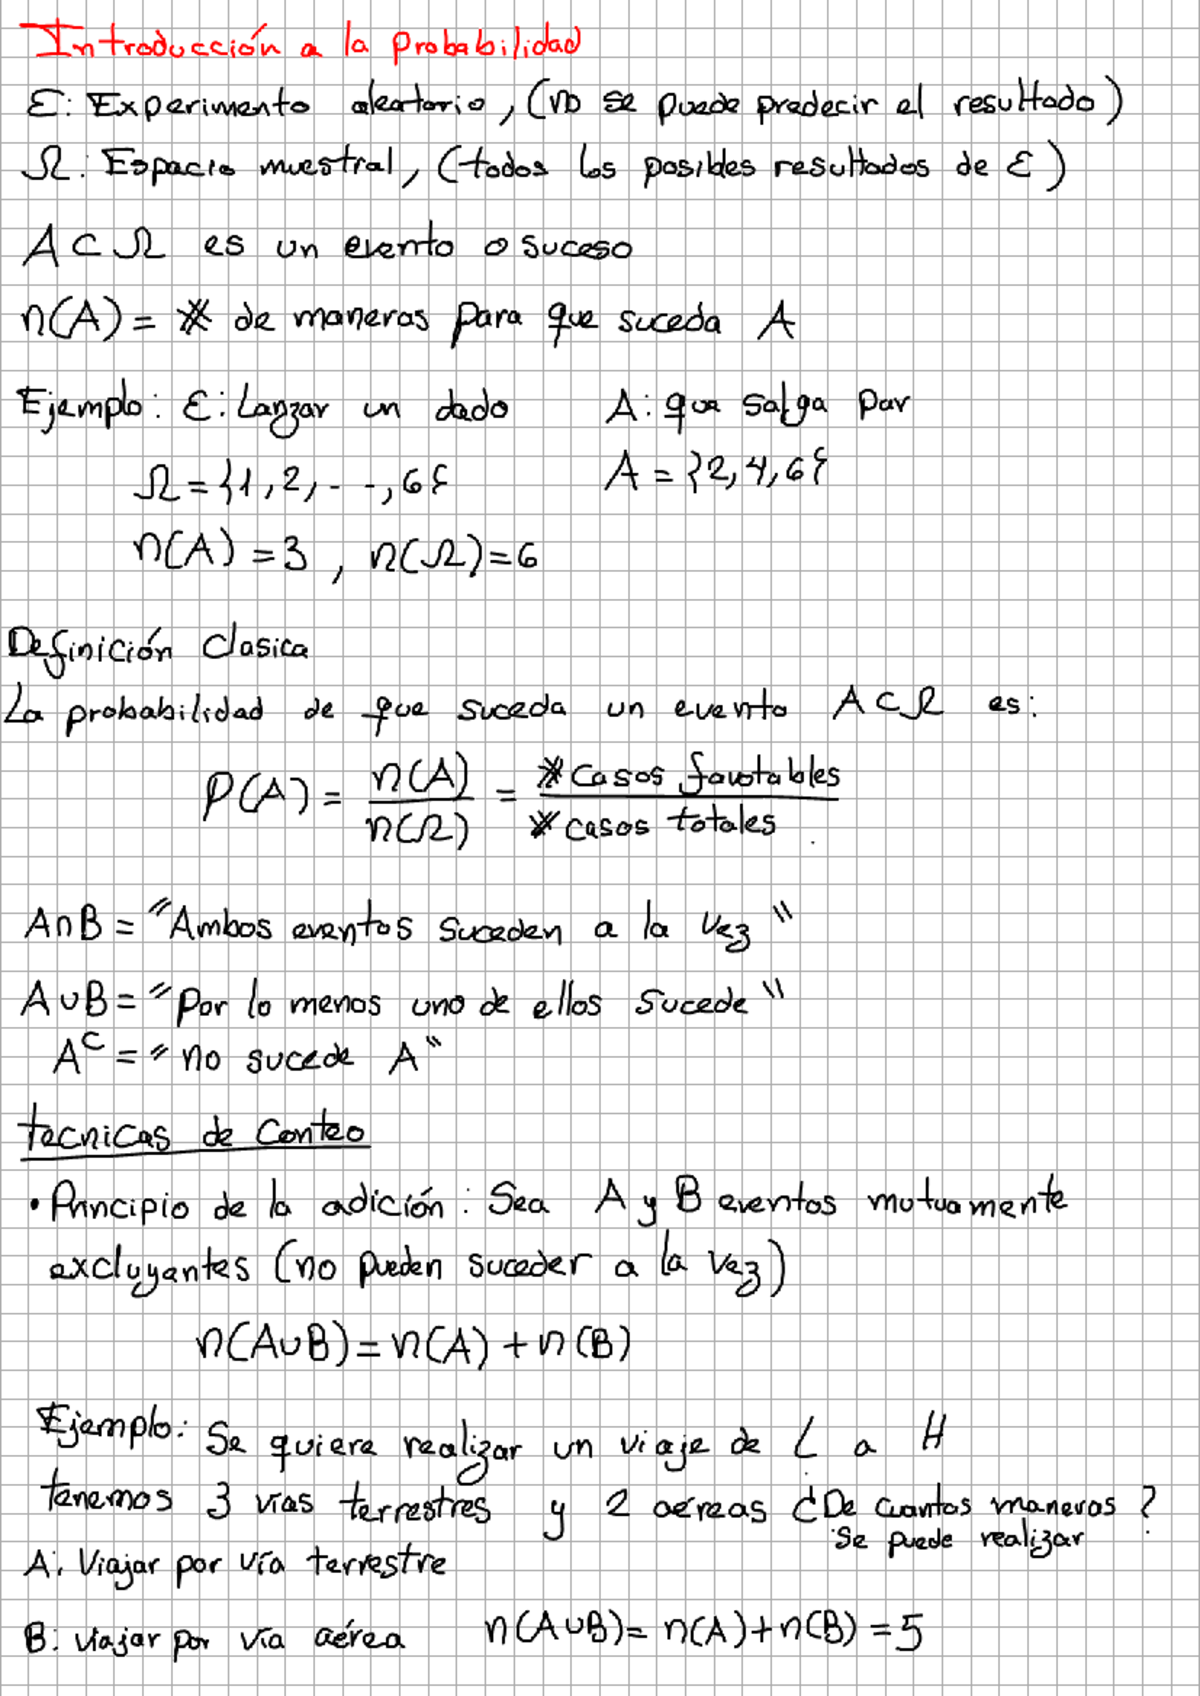 Introducción a la probabilidad
Ɛ: Experimento aleatorio, (no se puede predecir el resultado)
Ω: Espacio muestral, (todos los posibles resultados de Ɛ)
A⊂Ω es un evento o suceso
n(A) = # de maneras para que suceda A
Ejemplo: Ɛ: Lanzar un dado A: que salga par
Ω = {1, 2, - - -, 6} A = {2, 4, 6}
n(A) = 3 , n(Ω) = 6
Definición Clasica
La probabilidad de que suceda un evento A⊂Ω es:
P(A) = n(A) / n(Ω) = # casos favorables / # casos totales
A∩B = "Ambos eventos suceden a la vez"
A∪B = "Por lo menos uno de ellos Sucede"
A^C = "no sucede A"
tecnicas de Conteo
• Principio de la adición: Sea A y B eventos mutuamente
excluyantes (no pueden suceder a la vez)
n(A∪B) = n(A) + n(B)
Ejemplo: Se quiere realizar un viaje de L a H
tenemos 3 vías terrestres y 2 aéreas ¿De cuantas maneras ?
se puede realizar
A: Viajar por vía terrestre
B: viajar por vía aérea n(A∪B) = n(A) + n(B) = 5